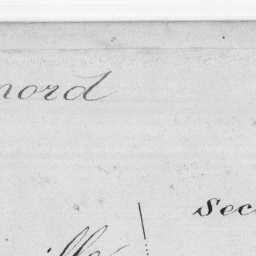 nord
sec
ille